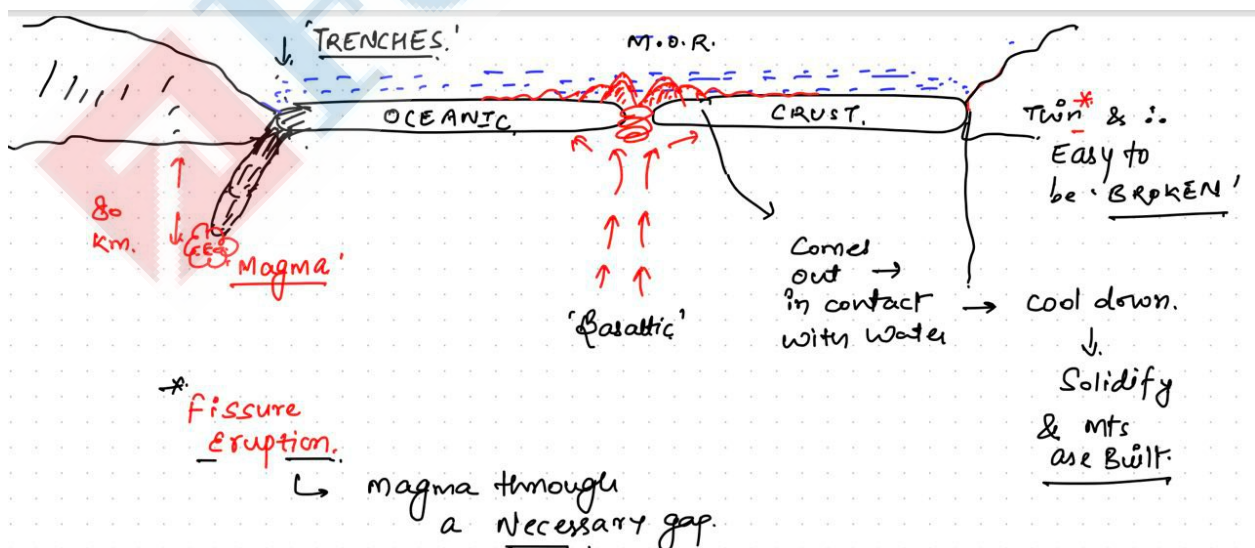 'TRENCHES.'
M.O.R.
OCEANIC
CRUST.
Thin* & ∴
Easy to
be 'BROKEN'
80
Km.
Magma'
'Basaltic'
Comes
out →
in contact →
with water
cool down.
↓
Solidify
& mts
are Built.
* Fissure
Eruption.
↳ magma through
a Necessary gap.